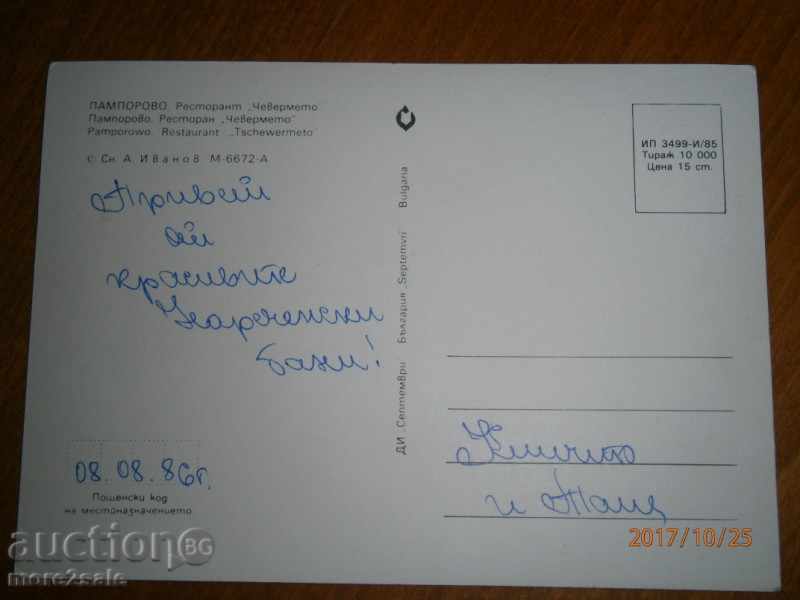 ПАМПОРОВО. Ресторант „Чевермето"
Пампорово. Ресторан „Чевермето"
Pamporowo. Restaurant „Tschewermeto"
© Сн. А. Иванов М-6672-А
Привет
от
красивите
Нареченски
бани!
08.08.86г.
Пощенски код
на местоназначението
ДИ „Септември" България „Septemvri" Bulgaria
ИП 3499-И/85
Тираж 10 000
Цена 15 ст.
и
2017/10/25
auctionBG
more2sale